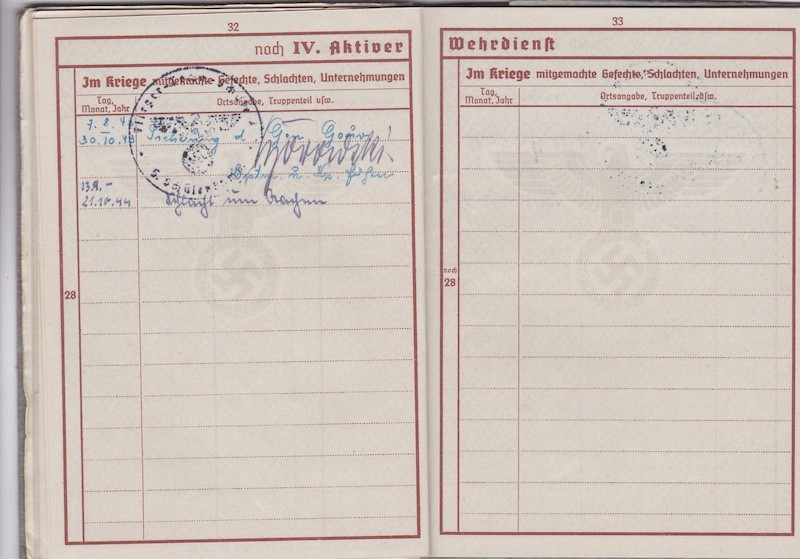 32
noch IV. Aktiver
Im Kriege mitgemachte Gefechte, Schlachten, Unternehmungen
Tag, Monat, Jahr
Ortsangabe, Truppenteil usw.
7. 8.
30. 10. 43
Sicherung d.
13.9.-
21.10.44 Schlacht um Aachen
28
33
Wehrdienst
Im Kriege mitgemachte Gefechte, Schlachten, Unternehmungen
Tag, Monat, Jahr
Ortsangabe, Truppenteil usw.
noch
28